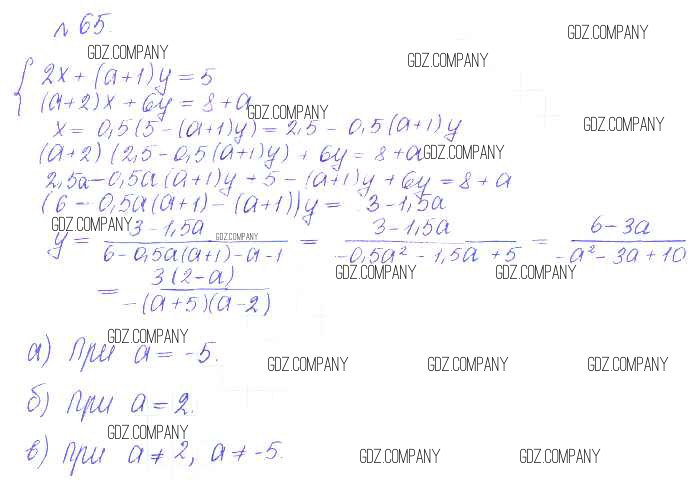 № 65.
GDZ.COMPANY GDZ.COMPANY GDZ.COMPANY
{ 2x + (a+1)y = 5
(a+2)x + 6y = 8+a
GDZ.COMPANY GDZ.COMPANY
x = 0,5(5 - (a+1)y) = 2,5 - 0,5(a+1)y
(a+2)(2,5 - 0,5(a+1)y) + 6y = 8+a
GDZ.COMPANY
2,5a - 0,5a(a+1)y + 5 - (a+1)y + 6y = 8+a
(6 - 0,5a(a+1) - (a+1))y = 3 - 1,5a
GDZ.COMPANY GDZ.COMPANY
y = (3 - 1,5a)/(6 - 0,5a(a+1) - a - 1) = (3 - 1,5a)/(-0,5a² - 1,5a + 5) = (6 - 3a)/(-a² - 3a + 10)
GDZ.COMPANY GDZ.COMPANY
= 3(2-a)/(-(a+5)(a-2))
GDZ.COMPANY
а) при a = -5.
GDZ.COMPANY GDZ.COMPANY GDZ.COMPANY
б) при a = 2.
GDZ.COMPANY
в) при a ≠ 2, a ≠ -5.
GDZ.COMPANY GDZ.COMPANY